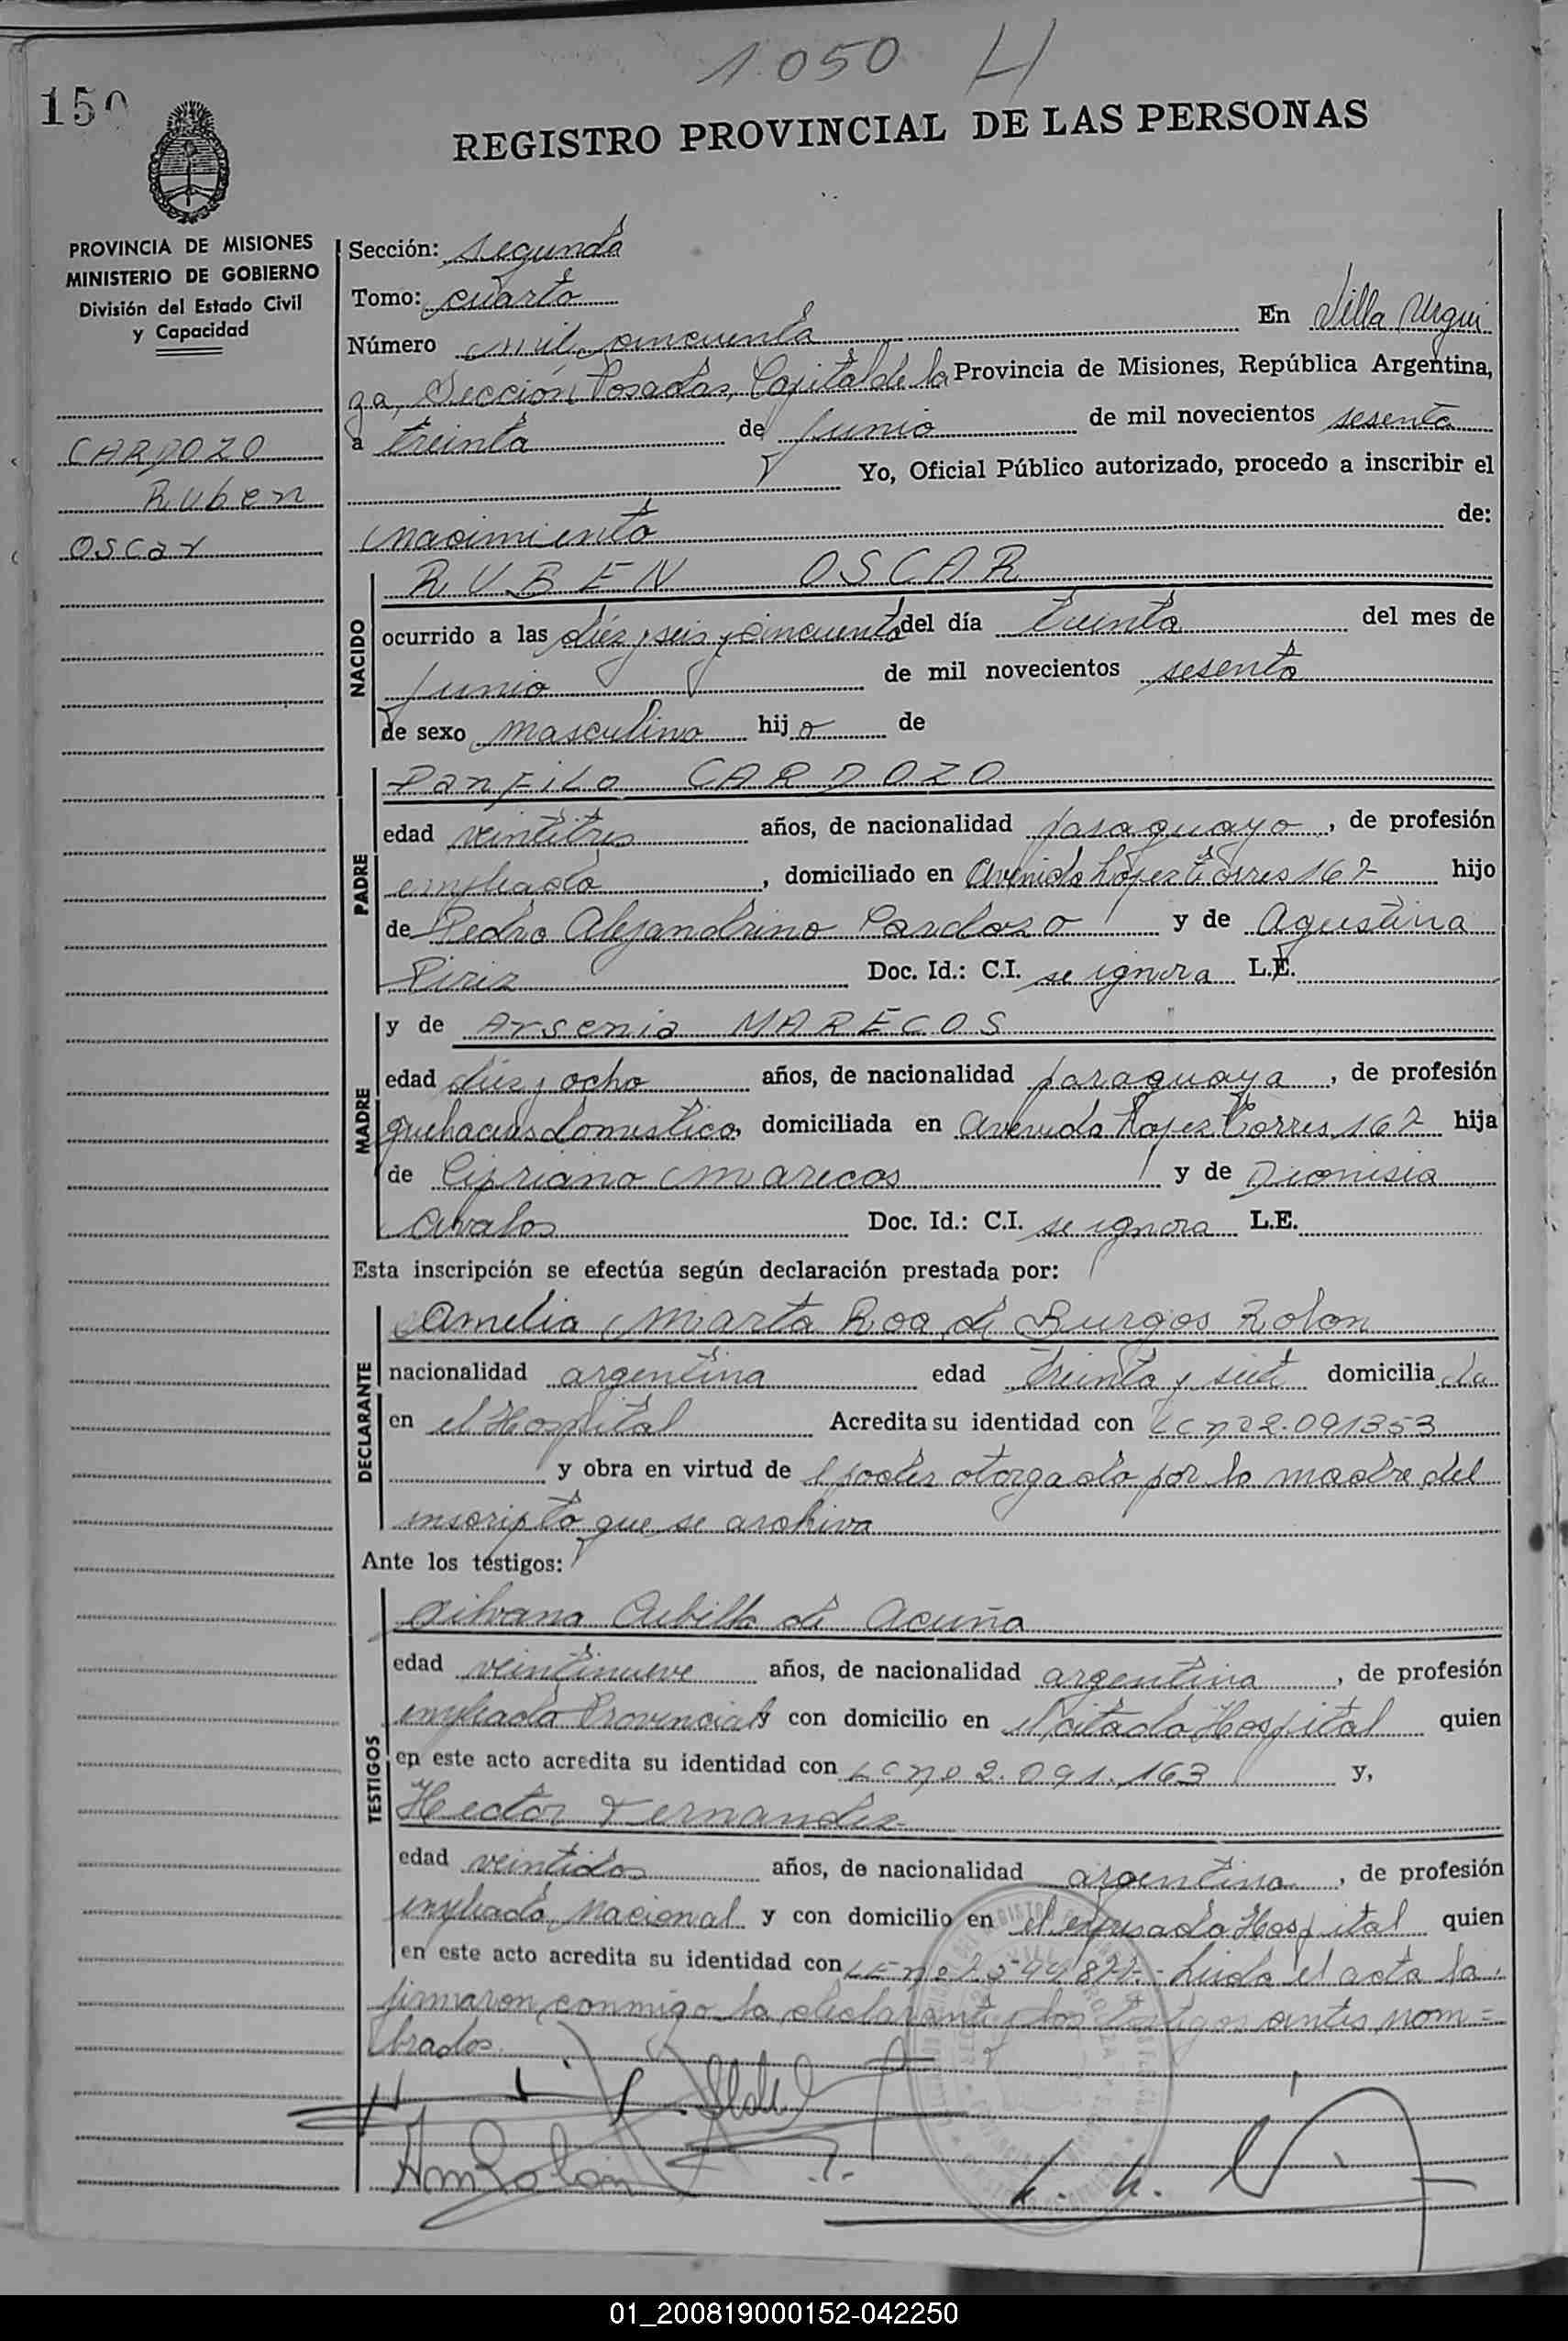 1050 H
150
REGISTRO PROVINCIAL DE LAS PERSONAS
PROVINCIA DE MISIONES
MINISTERIO DE GOBIERNO
División del Estado Civil
y Capacidad
CARDOZO
Ruben
Oscar
Sección: segunda
Tomo: cuarto
Número mil cincuenta En Villa Urqui
za, Sección Posadas, Capital de la Provincia de Misiones, República Argentina,
a treinta de junio de mil novecientos sesenta
Yo, Oficial Público autorizado, procedo a inscribir el
nacimiento de:
NACIDO
RUBEN OSCAR
ocurrido a las diez y seis y cincuenta del día treinta del mes de
junio de mil novecientos sesenta
de sexo masculino hijo de
PADRE
Panfilo CARDOZO
edad veintitres años, de nacionalidad paraguayo, de profesión
empleado, domiciliado en Avenida López Torres 167 hijo
de Pedro Alejandrino Cardozo y de Agustina
Piriz Doc. Id.: C.I. se ignora L.E.
MADRE
y de Arsenia MARECOS
edad diez y ocho años, de nacionalidad paraguaya, de profesión
quehaceres domestico, domiciliada en Avenida Lopez Torres 167 hija
de Cipriano Marecos y de Dionisia
Avalos Doc. Id.: C.I. se ignora L.E.
Esta inscripción se efectúa según declaración prestada por:
DECLARANTE
Amelia Marta Roa de Burgos Rolon
nacionalidad argentina edad treinta y siete domiciliada
en el Hospital Acredita su identidad con LC nº 2.091353
y obra en virtud de l poder otorgado por la madre del
inscripto que se archiva
Ante los testigos:
TESTIGOS
Silvana Cubilla de Acuña
edad veintinueve años, de nacionalidad argentina, de profesión
empleada Provincial y con domicilio en el citado Hospital quien
en este acto acredita su identidad con LC nº 2.091.163 y,
Hector Fernandez
edad veintidos años, de nacionalidad argentina, de profesión
empleado Nacional y con domicilio en el expresado Hospital quien
en este acto acredita su identidad con LE nº Leida el acta la
firmaron conmigo la declarante y los testigos antes nom=
brados.
AmRolón
01_200819000152-042250